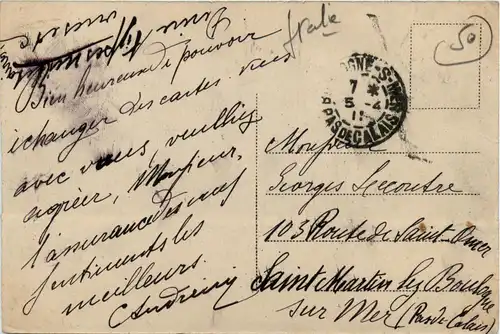 Italie
50
Bien heureux de pouvoir
échanger des cartes vues
avec vous, veuillez
agréer, Monsieur,
l'assurance de mes
sentiments les
meilleurs.
7 *
5 - 4
11
PAS DE CALAIS
Monsieur
Georges Lecoutre
103 Route de Saint-Omer
Saint Martin lez Boulogne
sur Mer (Pas de Calais)